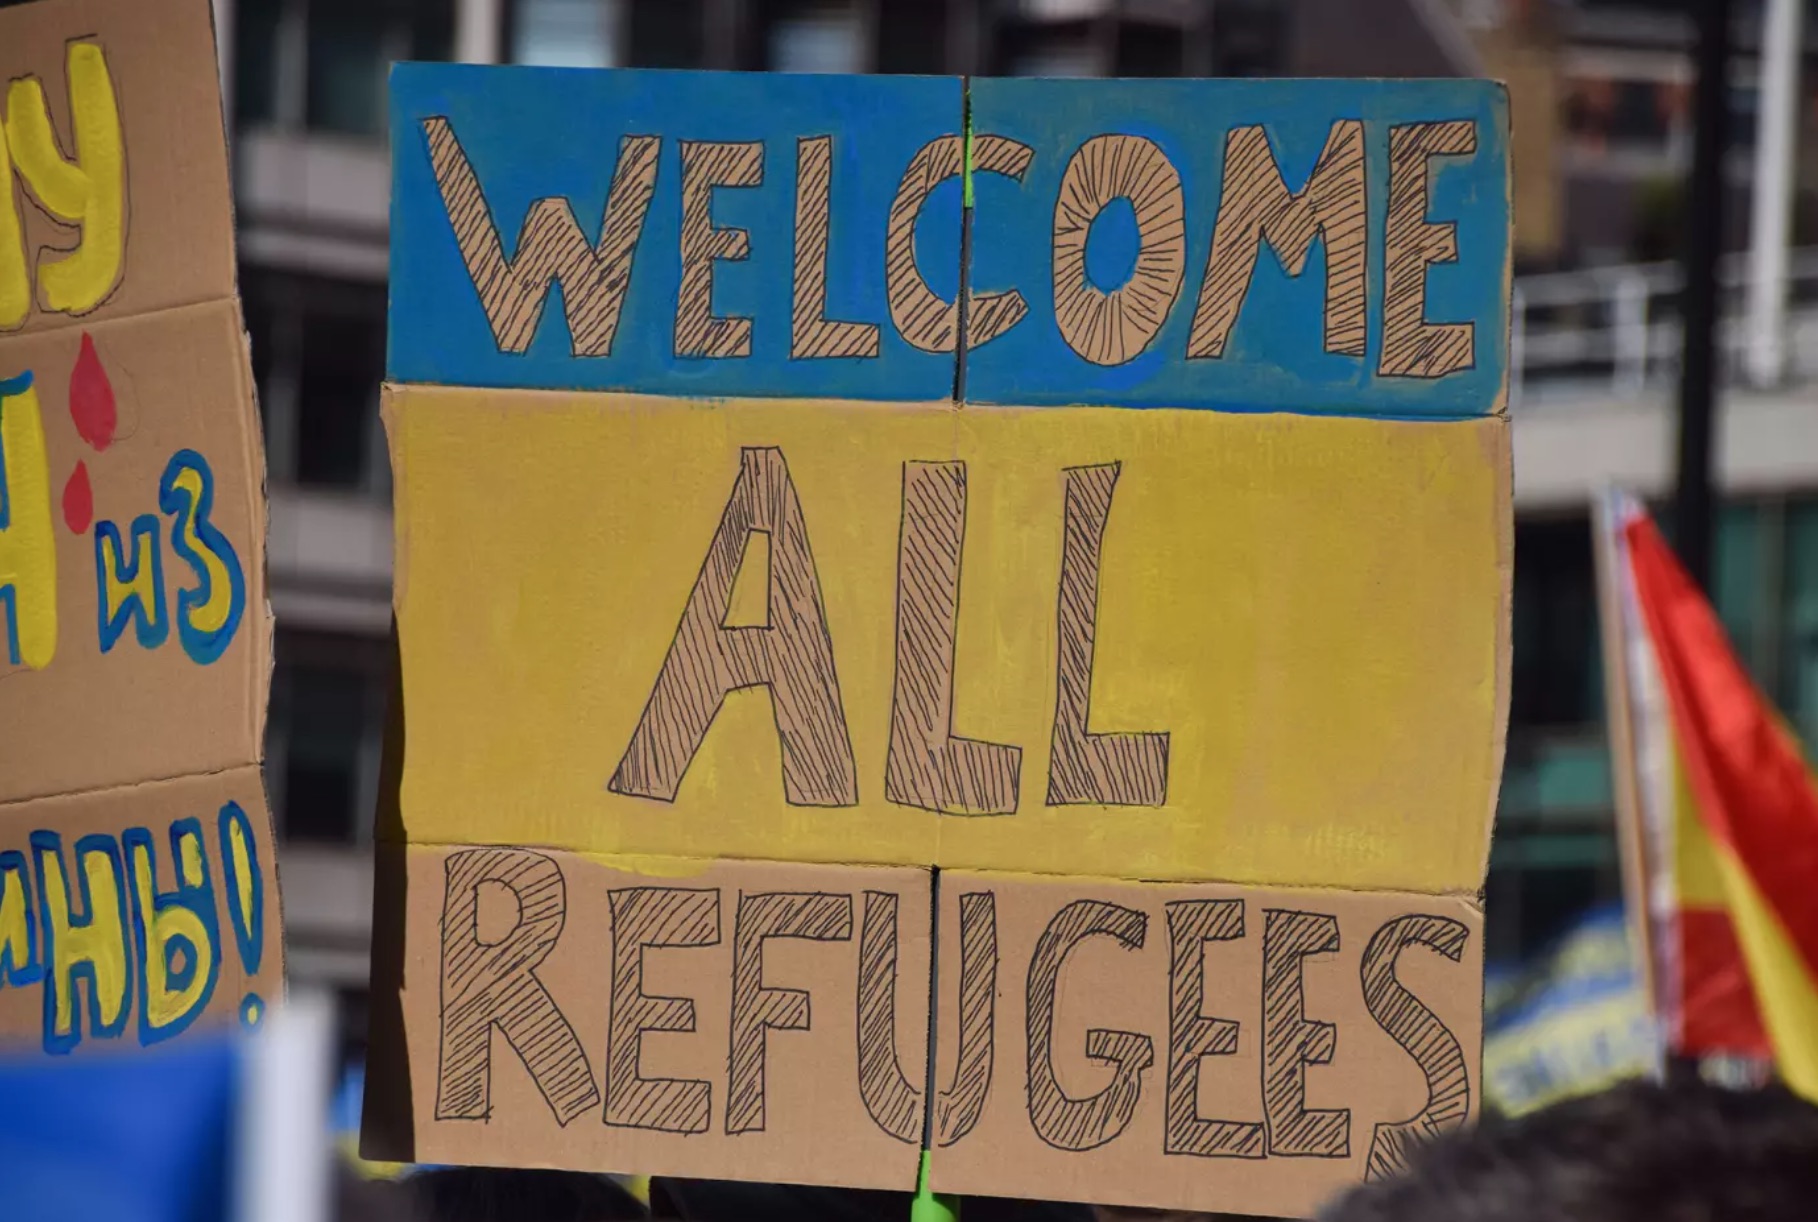 из
WELCOME
ALL
REFUGEES